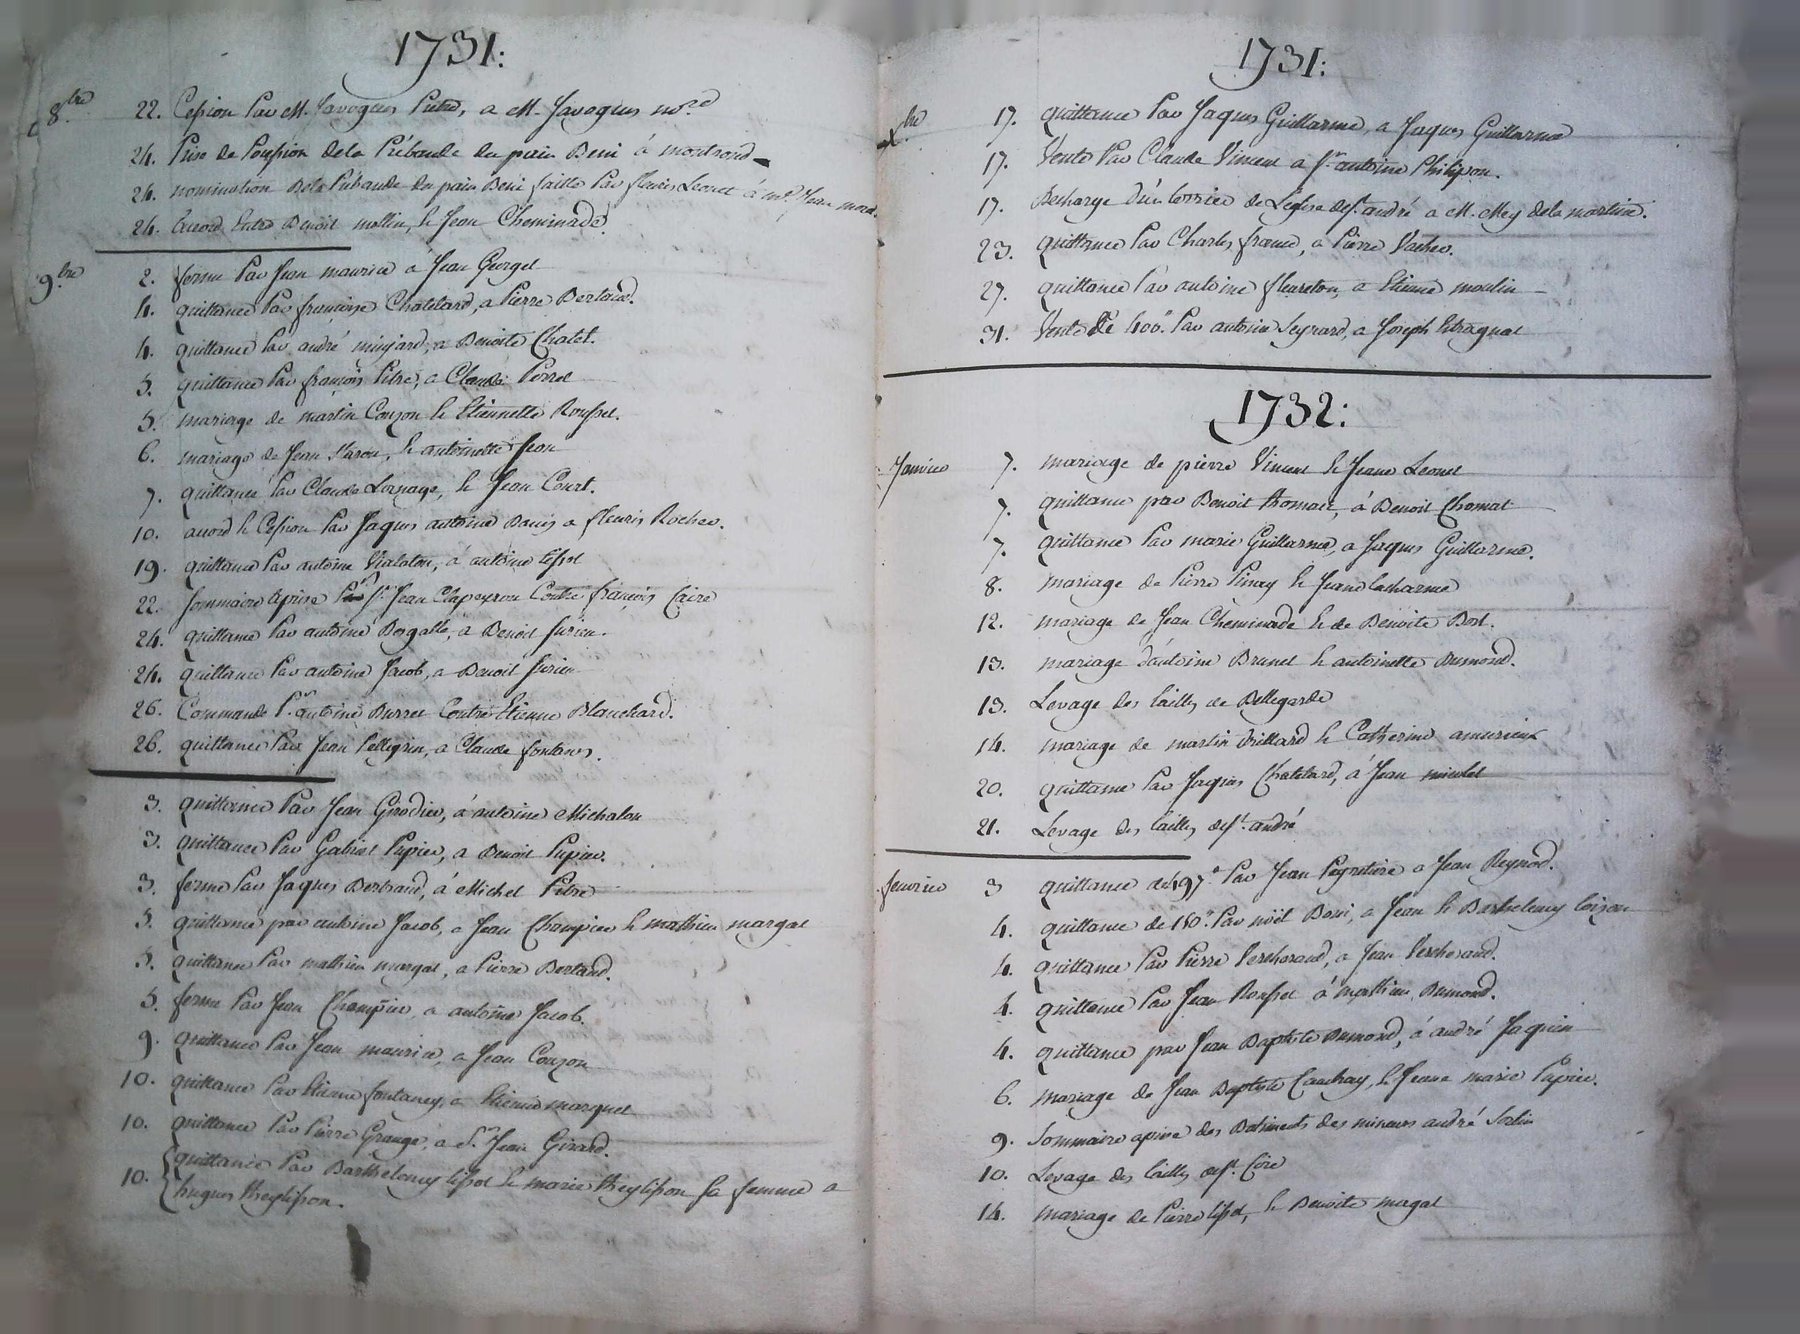 1731:
8.bre 22. Cession Par M. Javogues Pretre, a M. Javogues no.re
24. Prise de Possession dela Prébande du pain Beni á montrond
24. nomination Dela Prébande du pain Beni faitte Par fleuris Leonet á m.re Jean
24. accord Entre Benoit mollin, & Jean Cheminade
9.bre 2. ferme Par Jean maurice a Jean Georget
4. quittance Par françoise Chatelard, a Pierre Bertand.
4. quittance Par andré minjard, a Benoite Chatet.
5. quittance Par françois Pitre, a Claude Perret
5. mariage de martin Couzon & Etiennette Rousset.
6. mariage de Jean & antoinette Jean
7. quittance Par Claude & Jean Court.
10. acord & Cession Par Jaques antoine a fleuris Rocher.
19. quittance Par antoine Vialaton, á antoine tissot
22. Sommaire aprise P.r S.r Jean Clapeyron Contre françois Caire
24. quittance Par antoine Dogalle, a Benoit furieu.
24. quittance Par antoine Jacob, a Benoit furieu
26. Commande P.r antoine Burret Contre Etienne Blanchard.
26. quittance Par Jean Pellegrin, a Claude fontanes.
3. quittance Par Jean Girodier, á antoine Michalon
3. quittance Par Gabriel Pupier, a Benoit Pupier.
3. ferme Par Jaques Bertrand, á Michel Pitre
5. quittance par antoine Jacob, a Jean Champier & mathieu margat
5. quittance Par mathieu murgat, a Pierre Bertand.
5. ferme Par Jean Champier a antoine Jacob.
9. quittance Par Jean maurice, a Jean Couzon
10. quittance Par Etienne fontaney, a Etienne marquet
10. quittance Par Pierre Grange, a S.r Jean Girard.
10. quittance Par Barthelemy tissot & marie theylisson sa femme a
hugues theylisson.
1731:
X.bre 17. quittance Par Jaques Guillarme, a Jaques Guillarme
17. Vente Par Claude Vincent a S.r antoine Philipon.
17. Decharge d'un terrier de L'eglise de S.t andré a M. Mey dela martine.
23. quittance Par Charles france, a Pierre Vacher.
27. quittance Par antoine fleureton, a Etienne moulin
31. Vente De 400.# Par antoine Seyrard, a Joseph Etragnat
1732:
Janvier 7. mariage de pierre Vincent & Jeane Leonet
7. quittance par Benoit thomait, á Benoit Chomat
7. quittance Par marie Guillarme, a Jaques Guillarme.
8. mariage de Pierre Pinay & Jeane Lacharme
12. mariage de Jean Cheminade & de Benoite Bost.
13. mariage d'antoine Brunet & antoinette Dumond.
13. Levage des tailles de Bellegarde
14. mariage de martin Vrillard & Catherine amurieux
20. quittance Par Jaques Chatelard, á Jean miculet
21. Levage des tailles de S.t andré
feuvrier 3 quittance de 197.# Par Jean Peyratiere a Jean Reynod.
4. quittance de 150.# Par nöel Boni, a Jean & Barthelemy Loizon
4. quittance Par Pierre Vercherand, a Jean Vercherand.
4. quittance Par Jean Rousset á mathieu Dumond.
4. quittance par Jean Baptiste Dumond, á andré Jaquin
6. mariage de Jean Baptiste & Jeane marie Pupier.
9. Sommaire aprise des Batiments des mineurs andré Sorlin
10. Levage des tailles de S.t Cire
14. mariage de Pierre tissot, & Benoite magat